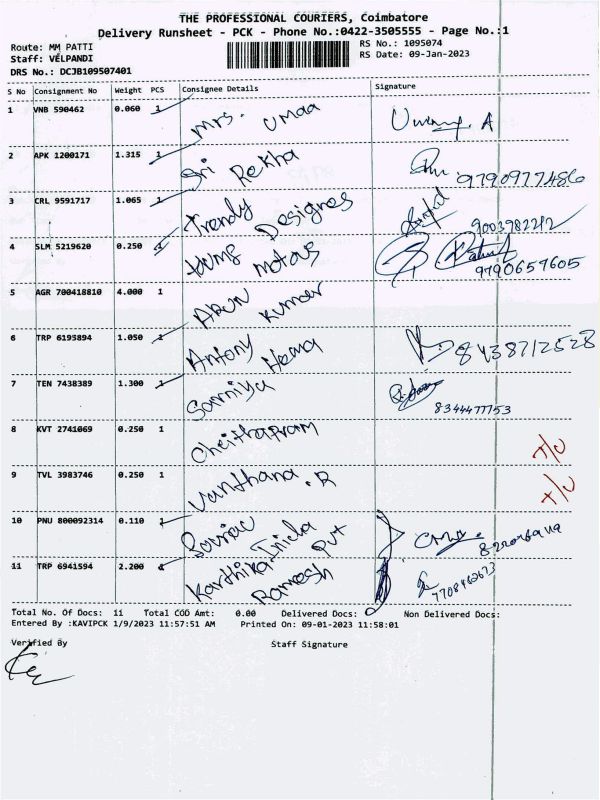 THE PROFESSIONAL COURIERS, Coimbatore
Delivery Runsheet - PCK - Phone No.:0422-3505555 - Page No.:1
Route: MM PATTI
RS No.: 1095074
Staff: VELPANDI
RS Date: 09-Jan-2023
DRS No.: DCJB109507401
S No Consignment No Weight PCS Consignee Details Signature
1 VNB 590462 0.060 1 Mrs. Umaa
2 APK 1200171 1.315 1 Sri Rekha 9790977486
3 CRL 9591717 1.065 1 Trendy Designes 9003982212
4 SLM 5219620 0.250 1 motors 9790657605
5 AGR 700418810 4.000 1 Arun Kumar
6 TRP 6195894 1.050 1 Antony Hema 8438712528
7 TEN 7438389 1.300 1 Sarniya 8344477753
8 KVT 2741069 0.250 1 T/C
9 TVL 3983746 0.250 1 Vanthana .R T/C
10 PNU 800092314 0.110 1 India Pvt
11 TRP 6941594 2.200 1 Karthika Ramesh
Total No. Of Docs: 11 Total COD Amt: 0.00 Delivered Docs: Non Delivered Docs:
Entered By :KAVIPCK 1/9/2023 11:57:51 AM Printed On: 09-01-2023 11:58:01
Verified By Staff Signature